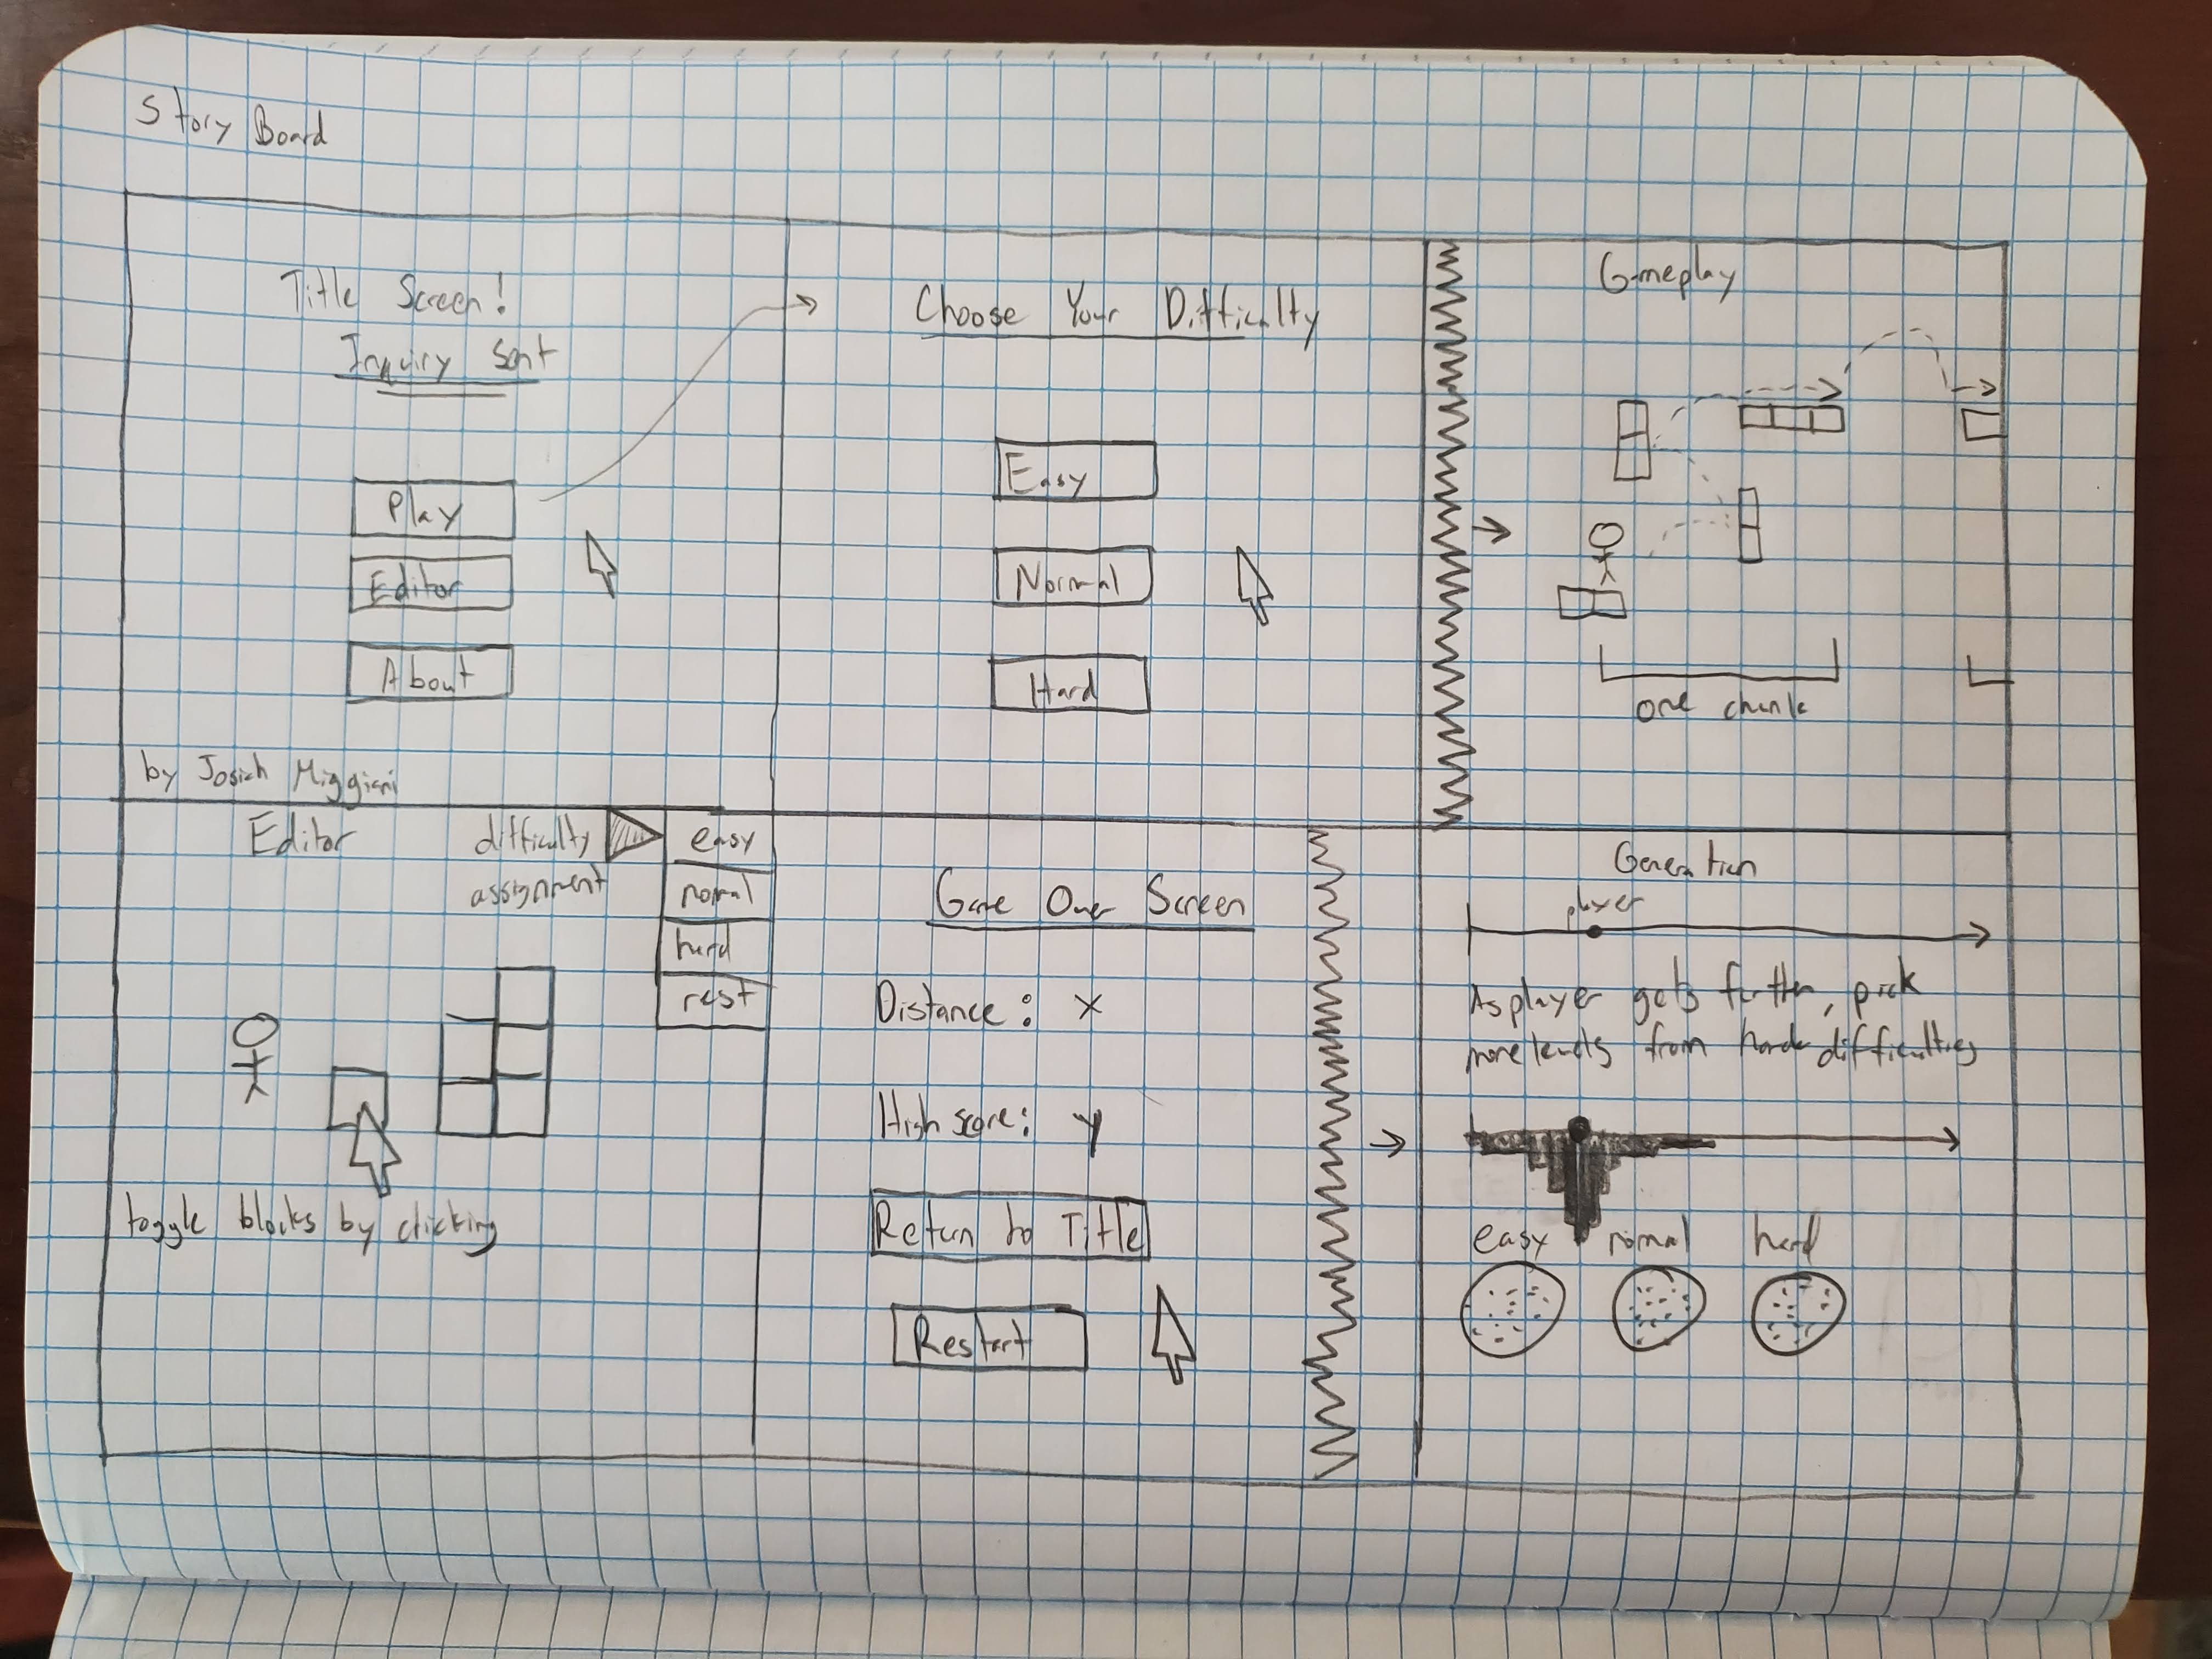 Story Board
Title Screen!
Inquiry Sent
Play
Editor
About
by Josiah Miggiani
Choose Your Difficulty
Easy
Normal
Hard
Gameplay
one chunk
Editor
difficulty
assignment
easy
normal
hard
rest
toggle blocks by clicking
Game Over Screen
Distance: x
High score: y
Return to Title
Restart
Generation
player
As player gets further, pick
more levels from harder difficulties
easy normal hard